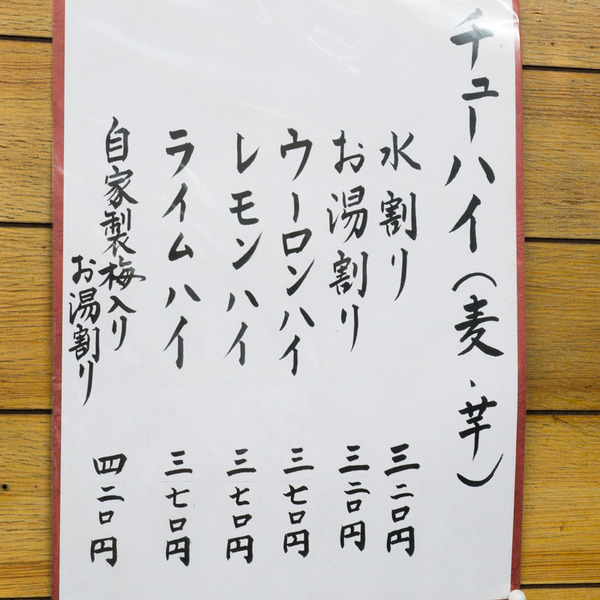 チューハイ(麦、芋)
水割り 三二〇円
お湯割り 三二〇円
ウーロンハイ 三七〇円
レモンハイ 三七〇円
ライムハイ 三七〇円
自家製梅入り
お湯割り 四二〇円